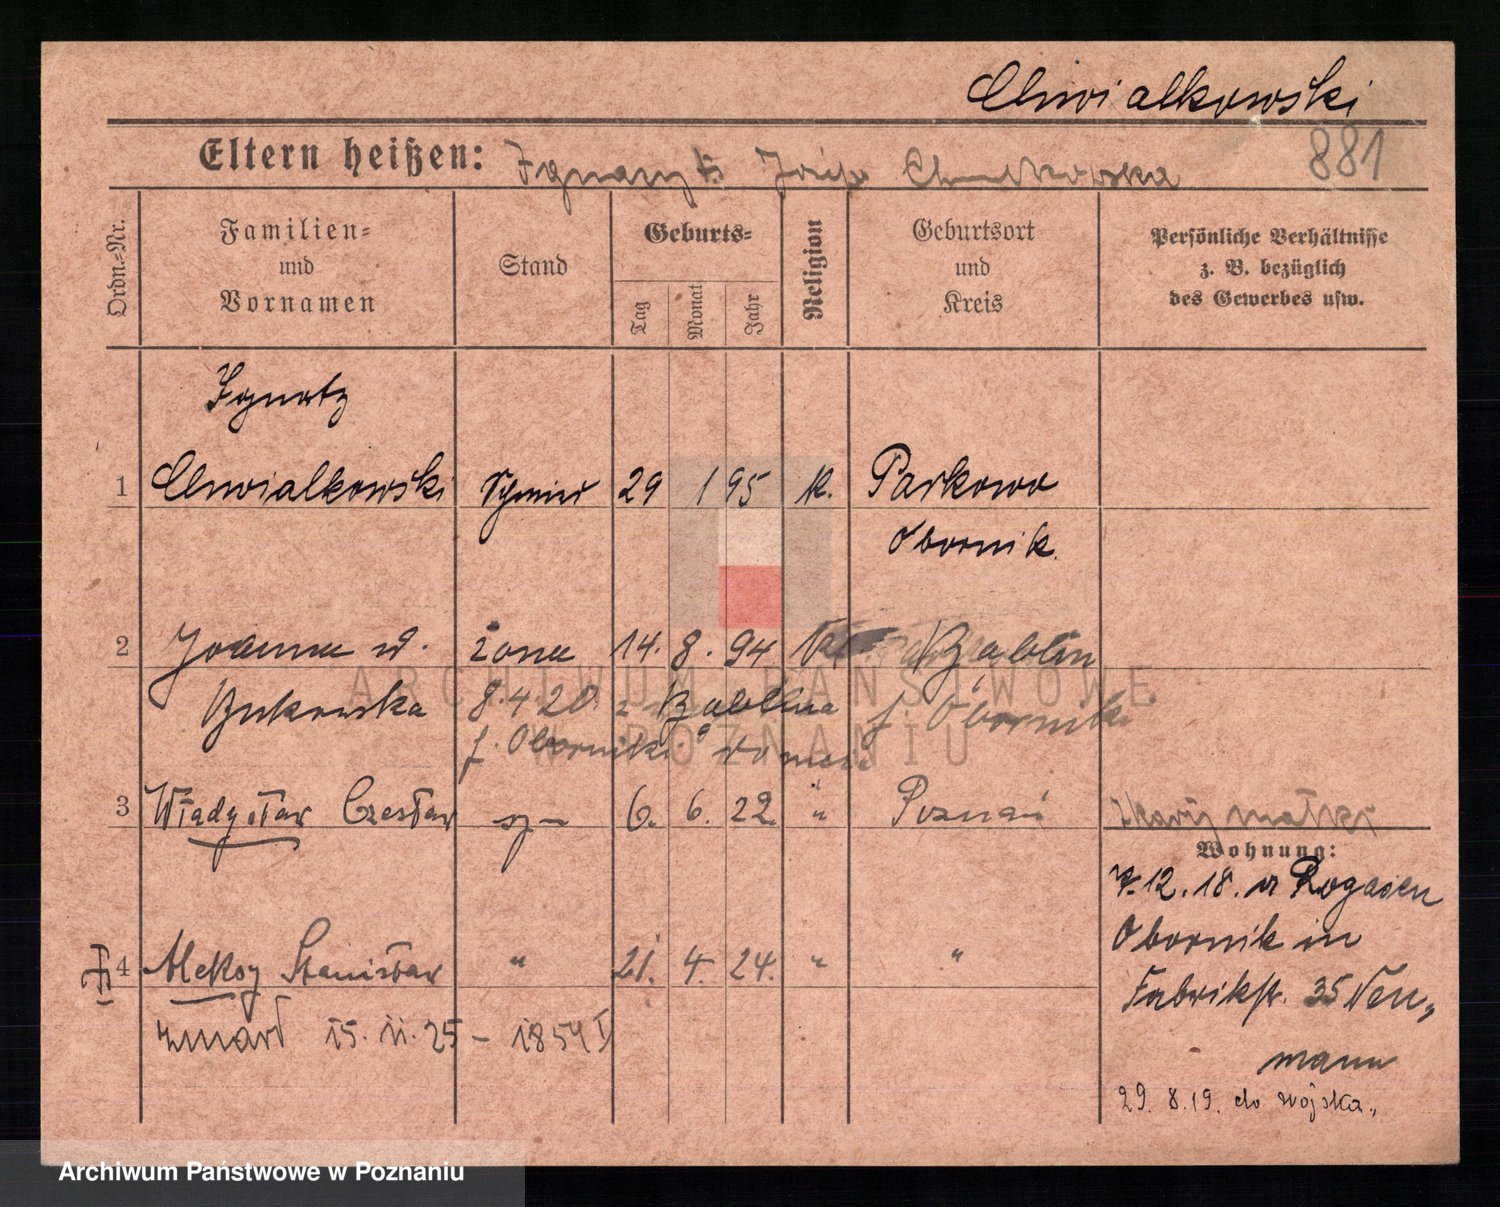 Chwialkowski
Eltern heißen: Ignacy i Józefa 881
Ordn.-Nr.
Familien-
und
Vornamen
Stand
Geburts-
Tag
Monat
Jahr
Religion
Geburtsort
und
Kreis
Persönliche Verhältnisse
z. B. bezüglich
des Gewerbes usw.
Ignatz
1 Chwialkowski Schmied 29 1 95 K. Parkowo
Obornik.
2 Joanna d. żona 14. 8. 94 Bąblin
Bukowska 8.4.20. z Bąblina p. Oborniki
p. Oborniki
3 Władysław Czesław syn 6. 6. 22. " Poznań
Wohnung:
7.12.18. v Rogasen
4 Aleksy Stanisław " 21. 4. 24. " "
Obornik in
Fabrikstr. 35 Neu„
zmarł 15. 11. 25 –
mann
29. 8. 19. do wojska„
ARCHIWUM PAŃSTWOWE
W POZNANIU
Archiwum Państwowe w Poznaniu